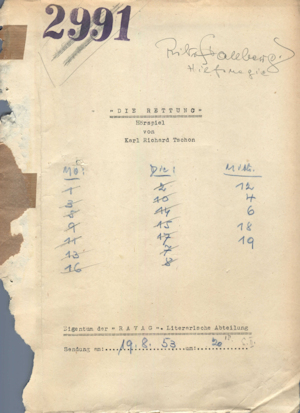 2991
"DIE RETTUNG"
Hörspiel
von
Karl Richard Tschon
MO: DIE: MIM:
1 2 12
3 10 4
5 14 6
9 15 18
11 17 19
13 7
16 8
Eigentum der "RAVAG". Literarische Abteilung
Sendung am: 19.8.53 um: 20